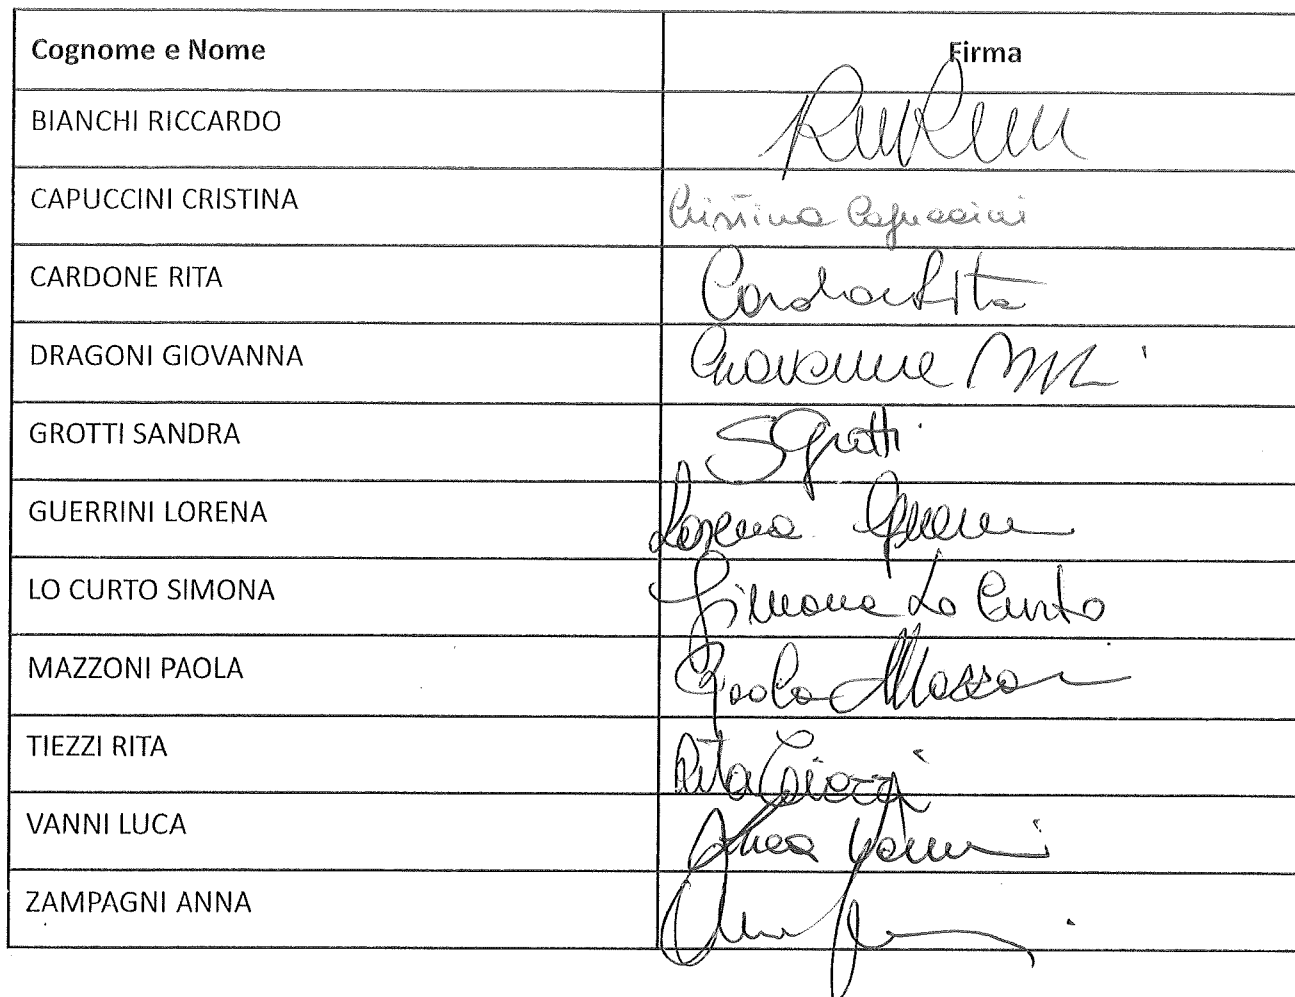 Cognome e Nome Firma
BIANCHI RICCARDO
CAPUCCINI CRISTINA Cristina Capuccini
CARDONE RITA Cardone Rita
DRAGONI GIOVANNA Giovanna
GROTTI SANDRA SGrotti
GUERRINI LORENA Lorena
LO CURTO SIMONA Simona Lo Curto
MAZZONI PAOLA Paola Mazzoni
TIEZZI RITA Rita Tiezzi
VANNI LUCA Luca Vanni
ZAMPAGNI ANNA Anna